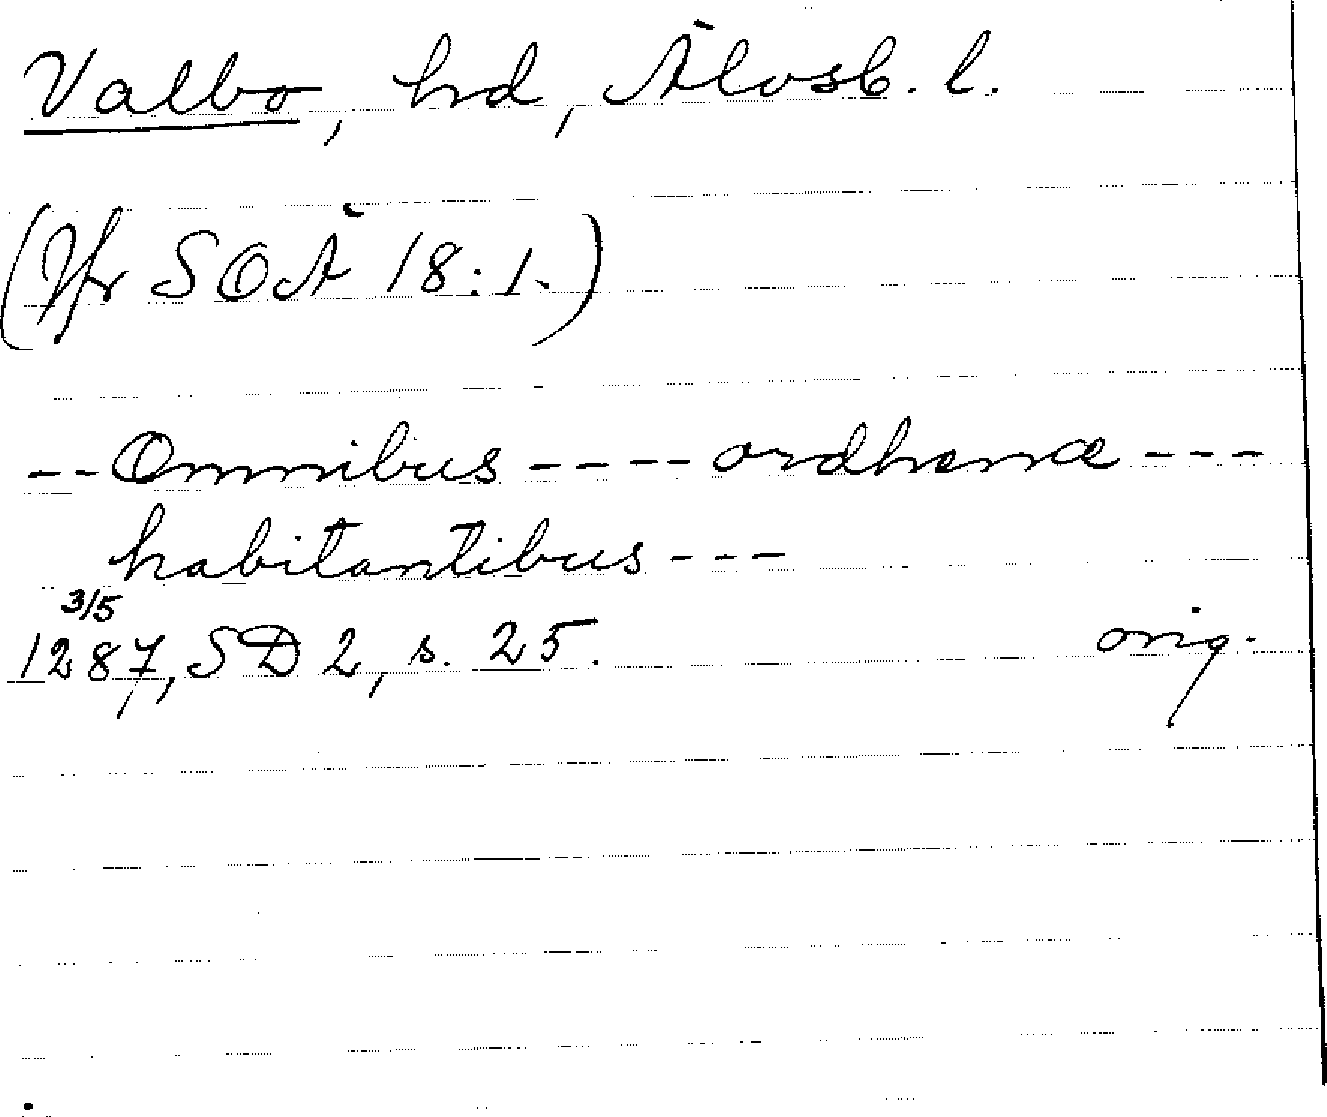 Valbo, hd, Älvsb. l.
(Jfr SOÄ 18:1.)
-- Omnibus ---- ordhenæ ---
habitantibus ---
3/5
1287, SD 2, s. 25. orig.